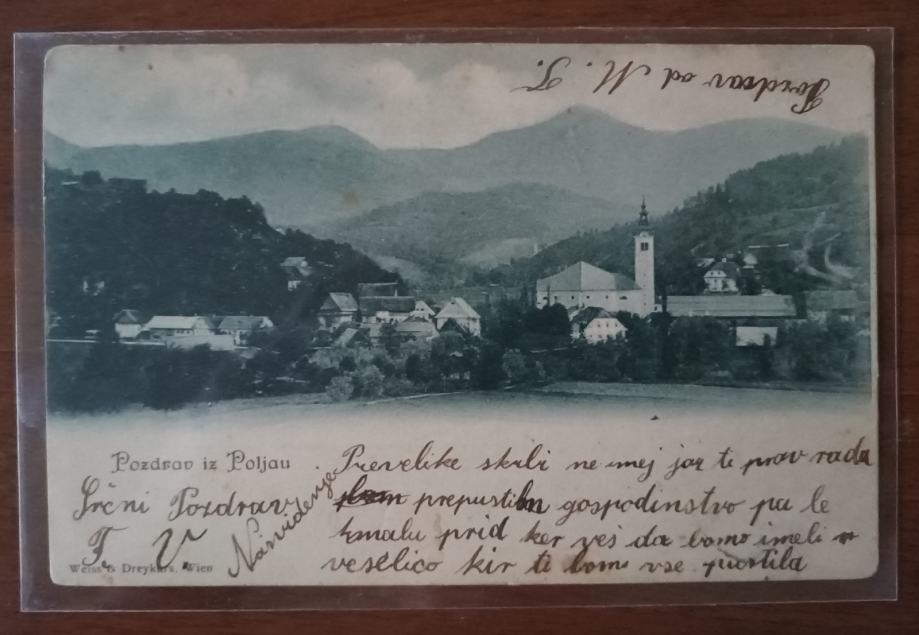 Pozdrav od M. T.
Pozdrav iz Poljan
Srčni Pozdrav
T. V
Nasvidenje
Prevelike skrbi ne imej jaz ti prav rada
prepustim gospodinstvo pa le
kmalu prid ker veš da bomo imeli
veselico kir ti bom vse pustila
Weiss & Dreykurs, Wien